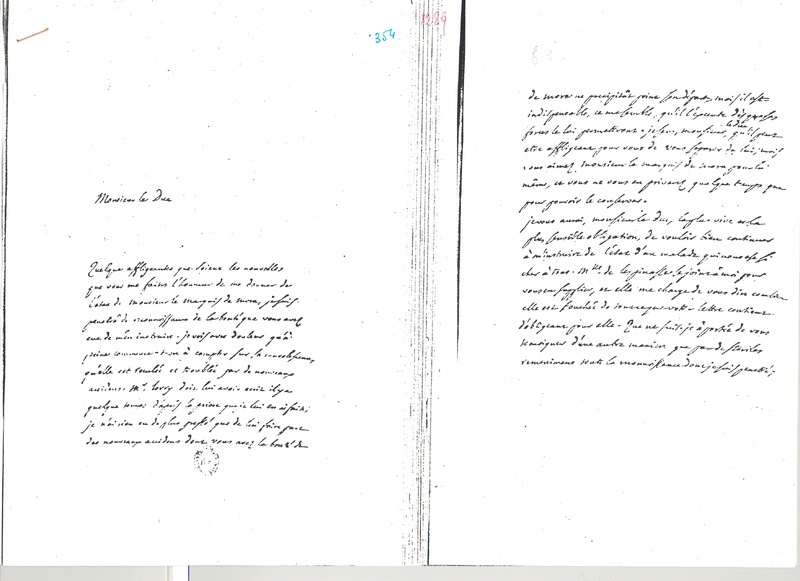 354
1289
Monsieur le Duc
Quelque affligeantes que soient les nouvelles
que vous me faites l'honneur de me donner de
l'état de monsieur le marquis de mora, je suis
penetré de reconnoissance de la bonté que vous avez
eue de m'en instruire. je vois avec douleur qu'à
peine commence-t-on à compter sur la convalescence,
qu'elle est reculée et troublée par de nouveaux
accidens. Mr. lorry doit lui avoir ecrit il y a
quelque temps d'après la priere que je lui en ai faite;
je n'ai rien eu de plus pressé que de lui faire part
des nouveaux accidens dont vous avez la bonté de
de mora ne precipitât point son départ, mais il est
indispensable, ce me semble, qu'il l'execute dès que ses
forces le lui permettront. je sens, monsieur le Duc, qu'il peut
etre affligeant pour vous de vous separer de lui; mais
vous aimez monsieur le marquis de mora pour lui
même, et vous ne vous en priverez quelque temps que
pour pouvoir le conserver.
je vous aurai, monsieur le Duc, la plus vive et la
plus sensible obligation, de vouloir bien continuer
à m'instruire de l'état d'un malade qui nous est si
cher à tous. Mlle. de lespinasse se joint à moi pour
vous en supplier, et elle me charge de vous dire combien
elle est touchée de tout ce que votre lettre contient
d'obligeant pour elle. Que ne suis-je à portée de vous
temoigner d'une autre maniere que par de steriles
remerciemens toute la reconnoissance dont je suis penetré;